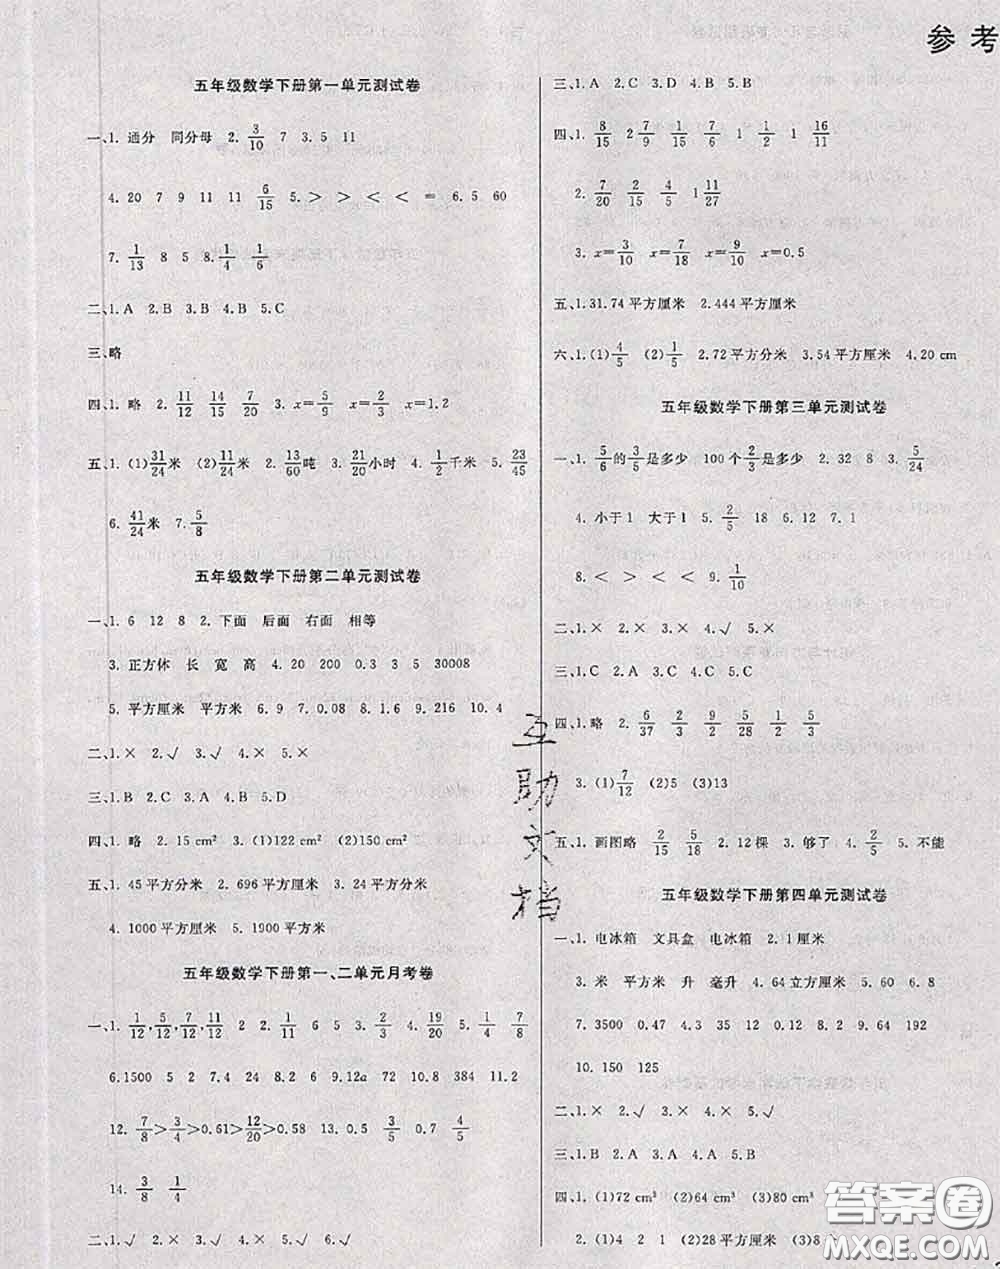 参 考
五年级数学下册第一单元测试卷
一、1. 通分 同分母 2. 3/10 7 3. 5 11
4. 20 7 9 11 11 6/15 5. > > < < = 6. 5 60
7. 1/13 8 5 8. 1/4 1/6
二、1. A 2. B 3. B 4. B 5. C
三、略
四、1. 略 2. 11/12 14/15 7/20 3. x=5/9 x=2/3 x=1.2
五、1. (1)31/24米 (2)11/24米 2. 13/60吨 3. 21/20小时 4. 1/2千米 5. 23/45
6. 41/24米 7. 5/8
五年级数学下册第二单元测试卷
一、1. 6 12 8 2. 下面 后面 右面 相等
3. 正方体 长 宽 高 4. 20 200 0.3 3 5 30008
5. 平方厘米 平方米 6. 9 7. 0.08 8. 1.6 9. 216 10. 4
二、1. × 2. √ 3. √ 4. × 5. ×
三、1. B 2. C 3. A 4. B 5. D
四、1. 略 2. 15 cm² 3. (1)122 cm² (2)142 cm²
五、1. 45 平方分米 2. 696 平方厘米 3. 24 平方分米
4. 1000 平方厘米 5. 1900 平方米
五年级数学下册第一、二单元月考卷
一、1. 1/12, 5/12, 7/12, 11/12 2 2. 1/11 6 5 3. 2/3 4. 19/20 5. 1/4 7/8
6. 1500 5 2 7. 24 8. 2 6 9. 12a 72 10. 8 384 11. 2
12. 7/8>3/4>0.61>12/20>0.58 13. 0.5 3/5 0.7 4/5
14. 3/8 1/4
二、1. √ 2. × 3. √ 4. × 5. √ 6. √
三、1. A 2. C 3. D 4. B 5. B
四、1. 8/15 2 7/9 1/15 7/6 1 1/2 16/11
2. 7/20 2/15 4 1 11/27
3. x=3/10 x=7/18 x=9/10 x=0.5
五、1. 31.74 平方厘米 2. 444 平方厘米
六、1. (1)4/5 (2)1/5 2. 72 平方分米 3. 54 平方厘米 4. 20 cm
五年级数学下册第三单元测试卷
一、1. 5/6的3/5是多少 100 个2/3是多少 2. 32 8 3. 5/24
4. 小于 1 大于 1 5. 2/5 18 6. 12 7. 1
8. < > < < 9. 1/10
二、1. × 2. × 3. × 4. √ 5. ×
三、1. C 2. A 3. C 4. C 5. C
四、1. 略 2. 6/37 2/3 2/9 5/28 1/2 3/5
3. (1)7/12 (2)5 (3)13
五、1. 画图略 2/15 5/18 2. 12棵 3. 够了 4. 2/5 5. 不能
五年级数学下册第四单元测试卷
一、1. 电冰箱 文具盒 电冰箱 2. 1 厘米
3. 米 平方米 升 毫升 4. 64 立方厘米 5. 60 6. 8
7. 3500 0.47 4.3 35 12 0.12 8. 2 9. 64 192
10. 150 125
二、1. × 2. √ 3. × 4. × 5. √
三、1. B 2. A 3. A 4. A 5. B
四、1. (1)72 cm³ (2)64 cm³ (3)80 cm³
2. (1)4 2 1 (2)28 平方厘米 (3)8
互
助
文
档
答案卷
MXQE.COM